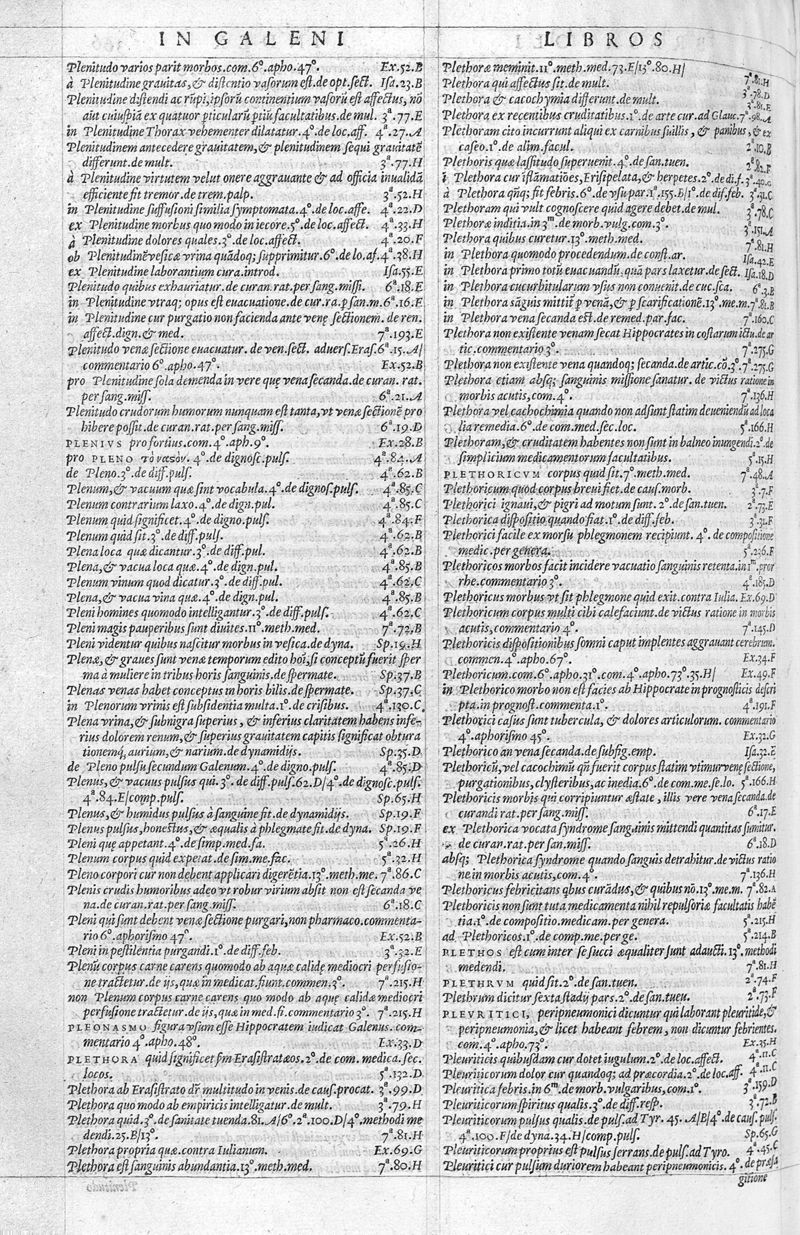 IN GALENI
Plenitudo varios parit morbos.com.6°.apho.47°. Ex.52.B
à Plenitudine grauitas,& distentio vasorum est.de opt.sect. Isa.23.B
Plenitudine distendi ac rūpi,ipsorū continentium vasorū est affectus, nō
aūt cuiuspiā ex quatuor pticularū ptiū facultatibus.de mul. 3ª.77.E
in Plenitudine Thorax vehementer dilatatur.4°.de loc.aff. 4ª.27.A
Plenitudinem antecedere grauitatem,& plenitudinem sequi grauitatē
differunt.de mult. 3ª.77.H
à Plenitudine virtutem velut onere aggrauante & ad officia inualidā
efficiente fit tremor.de trem.palp. 3ª.52.H
in Plenitudine suffusioni similia symptomata.4°.de loc.affe. 4ª.22.D
ex Plenitudine morbus quo modo in iecore.5°.de loc.affect. 4ª.33.H
à Plenitudine dolores quales.3°.de loc.affect. 4ª.20.F
ob Plenitudinē vesicæ vrina quādoq; supprimitur.6°.de lo.af.4ª.38.H
ex Plenitudine laborantium cura.introd. Isa.55.E
Plenitudo quibus exhauriatur.de curan.rat.per sang.missi. 6ª.18.E
in Plenitudine vtraq; opus est euacuatione.de cur.ra.p san.m.6ª.16.E
in Plenitudine cur purgatio non facienda ante venę sectionem.de ren.
affect.dign.& med. 7ª.193.E
Plenitudo venæ sectione euacuatur. de ven.sect. aduers.Eras.6ª.15.A/
commentario 6°.apho.47°. Ex.52.B
pro Plenitudine sola demenda in vere quę vena secanda.de curan. rat.
per sang.miss. 6ª.21.A
Plenitudo crudorum humorum nunquam est tanta,vt venæ sectionē pro
hibere possit.de curan.rat.per sang.miss. 6ª.19.D
PLENIVS pro fortius.com.4°.aph.9°. Ex.28.B
pro PLENO . 4°.de dignosc.puls. 4ª.84.A
de Pleno.3°.de diff.puls. 4ª.62.B
Plenum,& vacuum quæ sint vocabula.4°.de dignos.puls. 4ª.85.C
Plenum contrarium laxo.4°.de dign.pul. 4ª.85.C
Plenum quid significet.4°.de digno.puls. 4ª.84.F
Plenum quid sit.3°.de diff.puls. 4ª.62.B
Plena loca quæ dicantur.3°.de diff.pul. 4ª.62.B
Plena,& vacua loca quæ.4°.de dign.pul. 4ª.85.B
Plenum vinum quod dicatur.3°.de diff.pul. 4ª.62.C
Plena,& vacua vina quæ.4°.de dign.pul. 4ª.85.B
Pleni homines quomodo intelligantur.3°.de diff.puls. 4ª.62.C
Pleni magis pauperibus sunt diuites.11°.meth.med. 7ª.72.B
Pleni videntur quibus nascitur morbus in vesica.de dyna. Sp.19.H
Plenæ,& graues sunt venæ temporum edito hoi,si conceptū fuerit sper
ma à muliere in tribus horis sanguinis.de spermate. Sp.37.B
Plenas venas habet conceptus in horis bilis.de spermate. Sp.37.C
in Plenorum vrinis est subsidentia multa.1°.de crisibus. 4ª.130.C
Plena vrina,& subnigra superius , & inferius claritatem habens infe-
rius dolorem renum,& superius grauitatem capitis significat obtura
tionemq, aurium,& narium.de dynamidijs. Sp.35.D
de Pleno pulsu secundum Galenum.4°.de digno.puls. 4ª.85.D
Plenus,& vacuus pulsus qui.3°. de diff.puls.62.D/4°.de dignosc.puls.
4ª.84.E/comp.puls. Sp.65.H
Plenus,& humidus pulsus à sanguine fit.de dynamidijs. Sp.19.F
Plenus pulsus,honestus,& æqualis à phlegmate fit.de dyna. Sp.19.F
Pleni quę appetant.4°.de simp.med.fa. 5ª.26.H
Plenum corpus quid experat.de sim.me.fac. 5ª.32.H
Pleno corpori cur non debent applicari digerētia.13°.meth.me. 7ª.86.C
Plenis crudis humoribus adeo vt robur virium absit non est secanda ve
na.de curan.rat.per sang.miss. 6ª.18.C
Pleni qui sunt debent venæ sectione purgari,non pharmaco.commenta-
rio 6°.aphorismo 47°. Ex.52.B
Pleni in pestilentia purgandi.1°.de diff.feb. 3ª.32.E
Plenū corpus carne carens quomodo ab aquæ calidę mediocri perfusio-
ne tractetur.de ijs,quæ in medicat.fiunt.commen.3°. 7ª.215.H
non Plenum corpus carne carens quo modo ab aquę calidæ mediocri
perfusione tractetur.de ijs,quæ in med.fi.commentario 3°. 7ª.215.H
PLEONASMO figura vsum esse Hippocratem iudicat Galenus. com-
mentario 4°.apho.48°. Ex.33.D
PLETHORA quid significet sm Erasistratæos.2°.de com. medica.sec.
locos. 5ª.132.D
Plethora ab Erasistrato dr̄ multitudo in venis.de caus.procat. 3ª.99.D
Plethora quo modo ab empiricis intelligatur.de mult. 3ª.79.H
Plethora quid.3°.de sanitate tuenda.81.A/6°.2ª.100.D/4°.methodi me
dendi.25.E/13°. 7ª.81.H
Plethora propria quæ.contra Iulianum. Ex.69.G
Plethora est sanguinis abundantia.13°.meth.med. 7ª.80.H
LIBROS
Plethoræ meminit.11°.meth.med.73.E/13°.80.H/ 7ª.81.H
Plethora qui affectus sit.de mult. 3ª.78.D
Plethora & cacochymia differunt.de mult. 3ª.81.E
Plethora ex recentibus cruditatibus.1°.de arte cur.ad Glauc.7ª.98.A
Plethoram cito incurrunt aliqui ex carnibus suillis , & panibus, & ex
caseo.1°.de alim.facul. 2ª.10.B
Plethoris quæ lassitudo superuenit.4°.de san.tuen. 2ª.82.F
ī Plethora cur īflāmatiōes,Erisipelata,& herpetes.2°.de di.f.3ª.40.G
à Plethora qñq; fit febris.6°.de vsu par.1ª.155.B/1°.de dif.feb. 3ª.31.C
Plethoram qui vult cognoscere quid agere debet.de mul. 3ª.78.C
Plethoræ inditia.in 3m.de morb.vulg.com.3°. 3ª.151.A
Plethora quibus curetur.13°.meth.med. 7ª.81.H
in Plethora quomodo procedendum.de const.ar. Isa.42.E
in Plethora primo totū euacuandū,quā pars laxetur.de sect. Isa.18.D
in Plethora cucurbitularum vsus non conuenit.de cuc.sca. 6ª.3.B
in Plethora sāguis mittiť p venā,& p scarificationē.13°.me.m.7ª.81.B
in Plethora vena secanda est.de remed.par.fac. 7ª.160.C
Plethora non existente venam secat Hippocrates in costarum ictu.de ar
tic.commentario 3°. 7ª.275.G
Plethora non existente vena quandoq; secanda.de artic.cō.3°.7ª.275.G
Plethora etiam absq; sanguinis missione sanatur. de victus ratione in
morbis acutis,com.4°. 7ª.136.H
Plethora vel cachochimia quando non adsunt statim deueniendū ad loca
lia remedia.6°.de com.med.sec.loc. 5ª.166.H
Plethoram,& cruditatem habentes non sunt in balneo inungendi.2°.de
simplicium medicamentorum facultatibus. 5ª.15.H
PLETHORICVM corpus quid sit.7°.meth.med. 7ª.48.A
Plethoricum quod corpus breui fiet.de caus.morb. 3ª.7.F
Plethorici ignaui,& pigri ad motum sunt. 2°.de san.tuen. 2ª.73.E
Plethorica dispositio quando fiat.1°.de diff.feb. 3ª.31.F
Plethorici facile ex morsu phlegmonem recipiunt. 4°. de compositione
medic.per genera. 5ª.236.F
Plethoricos morbos facit incidere vacuatio sanguinis retenta.in 1m.pror
rhe.commentario 3°. 4ª.185.D
Plethoricus morbus vt fit phlegmone quid exit.contra Iulia. Ex.69.D
Plethoricum corpus multi cibi calefaciunt.de victus ratione in morbis
acutis,commentario 4°. 7ª.145.D
Plethoricis dispositionibus somni caput implentes aggrauant cerebrum.
commen.4°.apho.67°. Ex.34.F
Plethoricum.com.6°.apho.31°.com.4°.apho.73°.35.H/ Ex.49.F
in Plethorico morbo non est facies ab Hippocrate in prognosticis descri
pta.in prognost.commenta.1°. 4ª.191.F
Plethorici casus sunt tubercula, & dolores articulorum. commentario
4°.aphorismo 45°. Ex.32.G
Plethorico an vena secanda.de subfig.emp. Isa.32.E
Plethoricū,vel cacochimū qñ fuerit corpus statim vtimur venę sectione,
purgationibus,clysteribus,ac inedia.6°.de com.me.se.lo. 5ª.166.H
Plethoricis morbis qui corripiuntur æstate , illis vere vena secanda.de
curandi rat.per sang.miss. 6ª.17.E
ex Plethorica vocata syndrome sanguinis mittendi quantitas sumitur.
de curan.rat.per san.miss. 6ª.18.D
absq; Plethorica syndrome quando sanguis detrahitur.de victus ratio
ne in morbis acutis,com.4°. 7ª.136.H
Plethoricus febricitans qbus curādus,& quibus nō.13°.me.m. 7ª.82.A
Plethoricis non sunt tuta medicamenta nihil repulsoriæ facultatis habē
tia.1°.de compositio.medicam.per genera. 5ª.215.H
ad Plethoricos.1°.de comp.me.perge. 5ª.214.B
PLETHOS est cum inter se succi æqualiter sunt adaucti.13°.methodi
medendi. 7ª.81.H
PLETHRVM quid sit.2°.de san.tuen. 2ª.74.F
Plethrum dicitur sexta stadij pars.2°.de san.tuen. 2ª.73.F
PLEVRITICI, peripneumonici dicuntur qui laborant pleuritide,&
peripneumonia,& licet habeant febrem, non dicuntur febrientes.
com.4°.apho.73°. Ex.35.H
Pleuriticis quibusdam cur dotet iugulum.2°.de loc.affect. 4ª.11.C
Pleuriticorum dolor cur quandoq; ad præcordia.2°.de loc.aff. 4ª.11.C
Pleuritica febris.in 6m.de morb.vulgaribus,com.1°. 3ª.159.D
Pleuriticorum spiritus qualis.3°.de diff.resp. 3ª.72.B
Pleuriticorum pulsus qualis.de puls.ad Tyr. 45. A/E/4°.de caus.puls.
4ª.100.F/de dyna.34.H/comp.puls. Sp.65.G
Pleuriticorum proprius est pulsus serrans.de puls.ad Tyro. 4ª.45.C
Pleuritici cur pulsum duriorem habeant peripneumonicis. 4°.de præsa
gitione